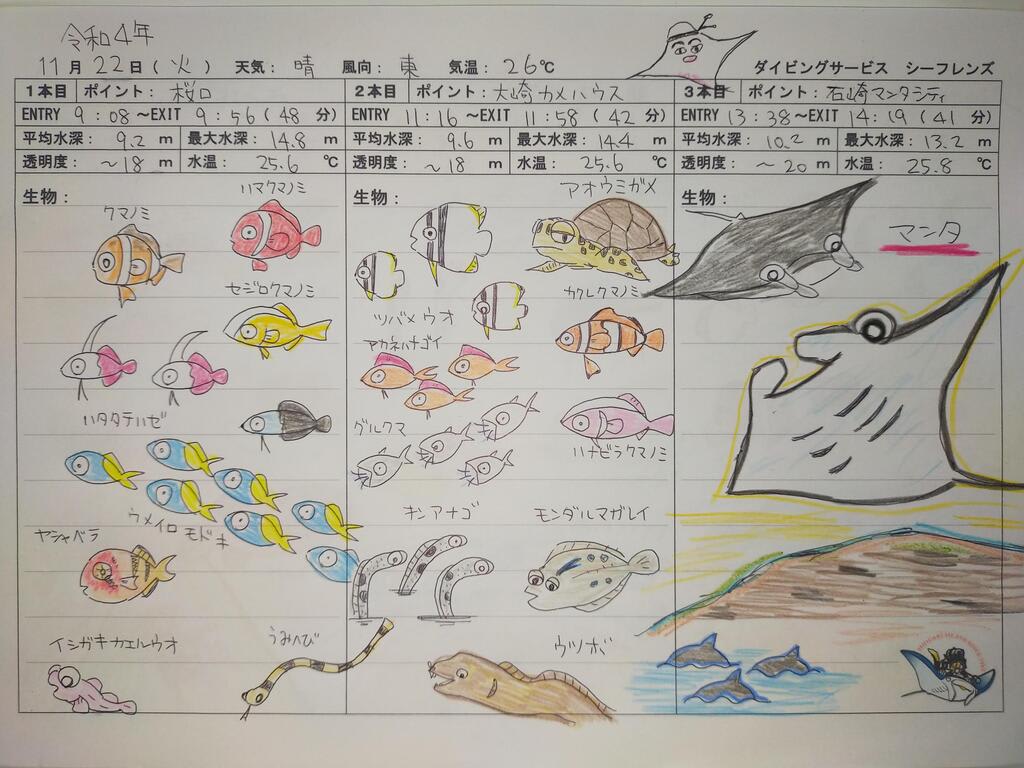 令和4年
11月22日(火) 天気：晴 風向：東 気温：26℃ ダイビングサービス シーフレンズ
1本目 ポイント：桜口
ENTRY 9：08～EXIT 9：56(48 分)
平均水深： 9.2 m 最大水深：14.8 m
透明度： ～18 m 水温： 25.6 ℃
生物：
クマノミ
ハマクマノミ
セジロクマノミ
ハタタテハゼ
ウメイロモドキ
ヤシャベラ
イシガキカエルウオ
うみへび
2本目 ポイント：大崎カメハウス
ENTRY 11：16～EXIT 11：58(42 分)
平均水深： 9.6 m 最大水深：14.4 m
透明度： ～18 m 水温： 25.6 ℃
生物：
アオウミガメ
ツバメウオ
カクレクマノミ
アカネハナゴイ
グルクマ
ハナビラクマノミ
キンアナゴ
モンダルマガレイ
ウツボ
3本目 ポイント：石崎マンタシティ
ENTRY 13：38～EXIT 14：19(41 分)
平均水深： 10.2 m 最大水深：13.2 m
透明度： ～20 m 水温： 25.8 ℃
生物：
マンタ